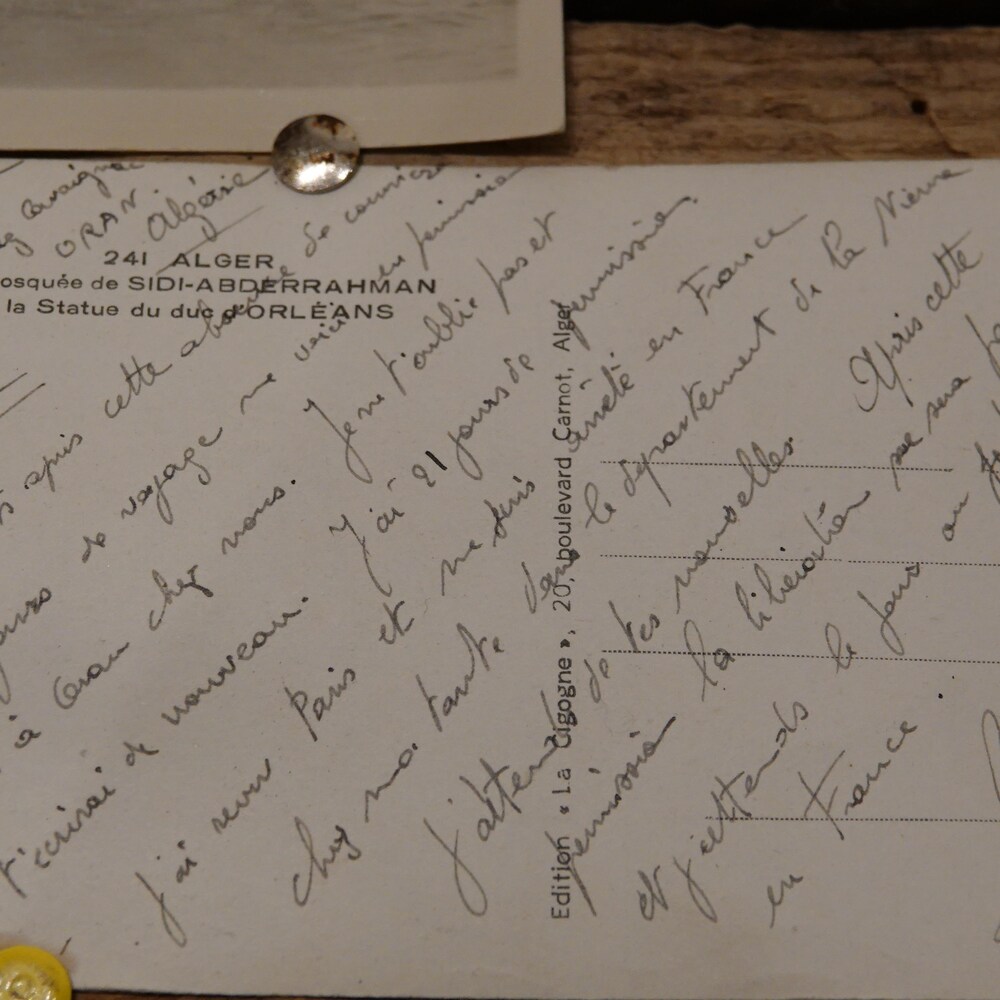 ORAN Algérie
241 ALGER
osquée de SIDI-ABDERRAHMAN
la Statue du duc d'ORLÉANS
cette absence de courrier
de voyage me voici en permission
à Oran chez nous. Je ne t'oublie pas et
t'écrirai de nouveau. J'ai 21 jours de permission.
J'ai revu Paris et me suis arrêté en France
chez ma tante dans le département de la Vienne
J'attends de tes nouvelles. Après cette
permission la libération me sera
et j'attends le jour ou
en France.
Edition « La Cigogne », 20, boulevard Carnot, Alger